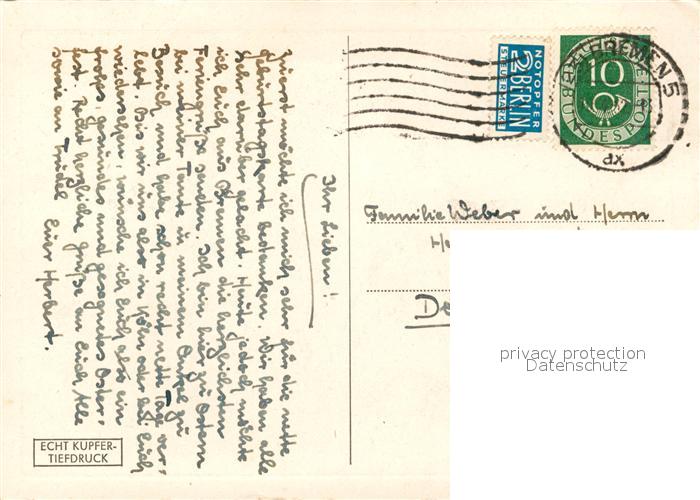 Ihr Lieben!!
Zuerst möchte ich mich sehr für die nette
Geburtstagskarte bedanken. Wir haben alle
sehr darüber gelacht. Heute jedoch möchte
ich Euch aus Bremen die herzlichsten
Feriengrüße senden. Ich bin hier zu Ostern
bei meiner Tante u meinem Onkel zu
Besuch und habe schon recht nette Tage ver-
lebt. Bis wir uns also in Köln oder bei Euch
wiedersehen, wünsche ich Euch also ein
frohes, gesundes und gesegnetes Oster-
fest. Recht herzliche Grüße an Euch Alle
sowie an Trudel Euer Herbert.
ECHT KUPFER-
TIEFDRUCK
NOTOPFER
2 BERLIN
STEUERMARKE
10
DEUTSCHE BUNDESPOST
BREMEN 5
Familie Weber und Herrn
privacy protection
Datenschutz